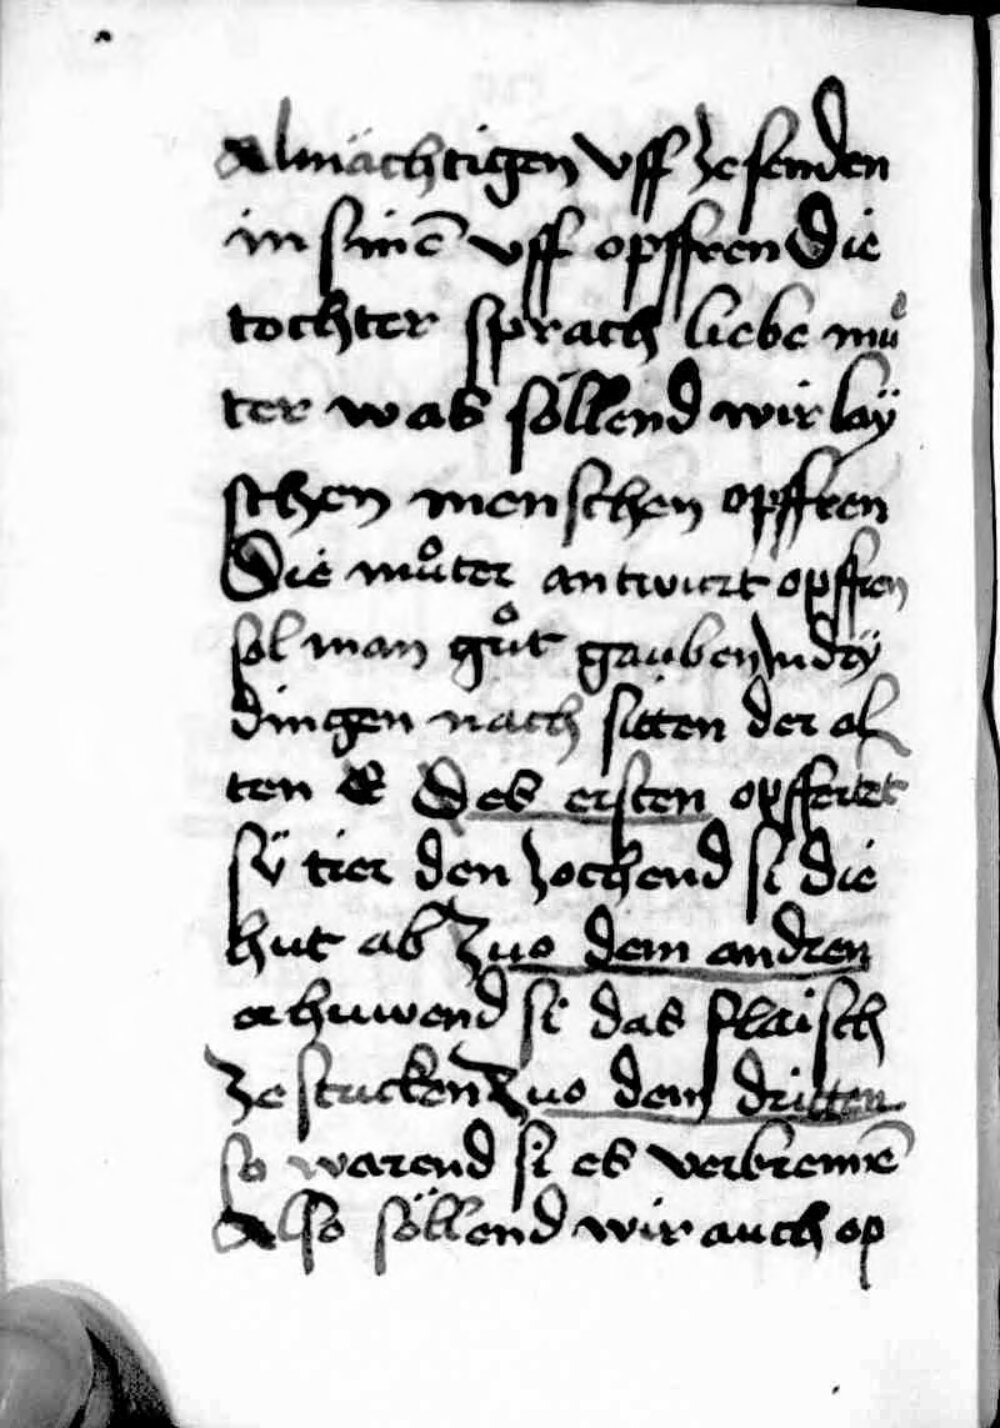 Almächtigen vff ze senden
in sinē vff opffren Die
tochter sprach liebe muͦ
ter was söllend wir laÿ
schen menschen opffren
Die muͦter antwurt opffren
sol man guͦt gauben vnd tÿ
dingen nach sitten der al
ten Des ersten opffertet
sÿ tier den zochend si die
hut ab Zuo dem andren
erhuwend si das flaisch
ze stucken Zuo dem dritten
so warend si es verbrenē
Also söllend wir auch op